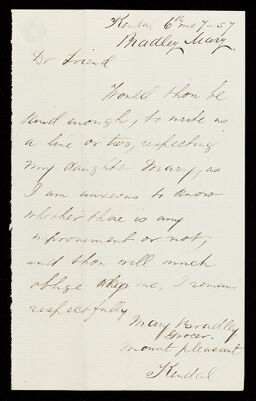 Kendal 6th mo 7 - 57
Bradley, Mary.
Dr Friend
Would thou be
kind enough, to write us
a line or two, respecting
my daughter Mary, as
I am anxious to know
whether there is any
improvement or not,
and thou will much
oblige me, I remain
respectfully
Mary Bradley
Grocer.
Mount pleasant
Kendal